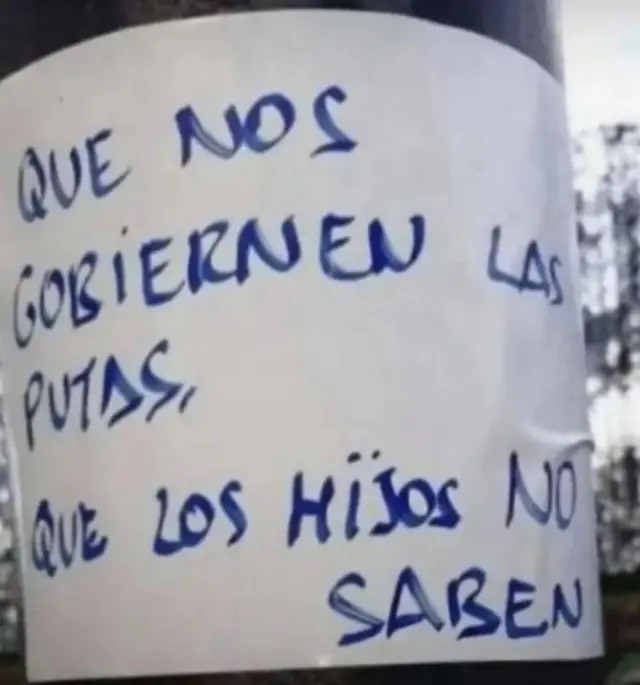 QUE NOS
GOBIERNEN LAS
PUTAS,
QUE LOS HIJOS NO
SABEN